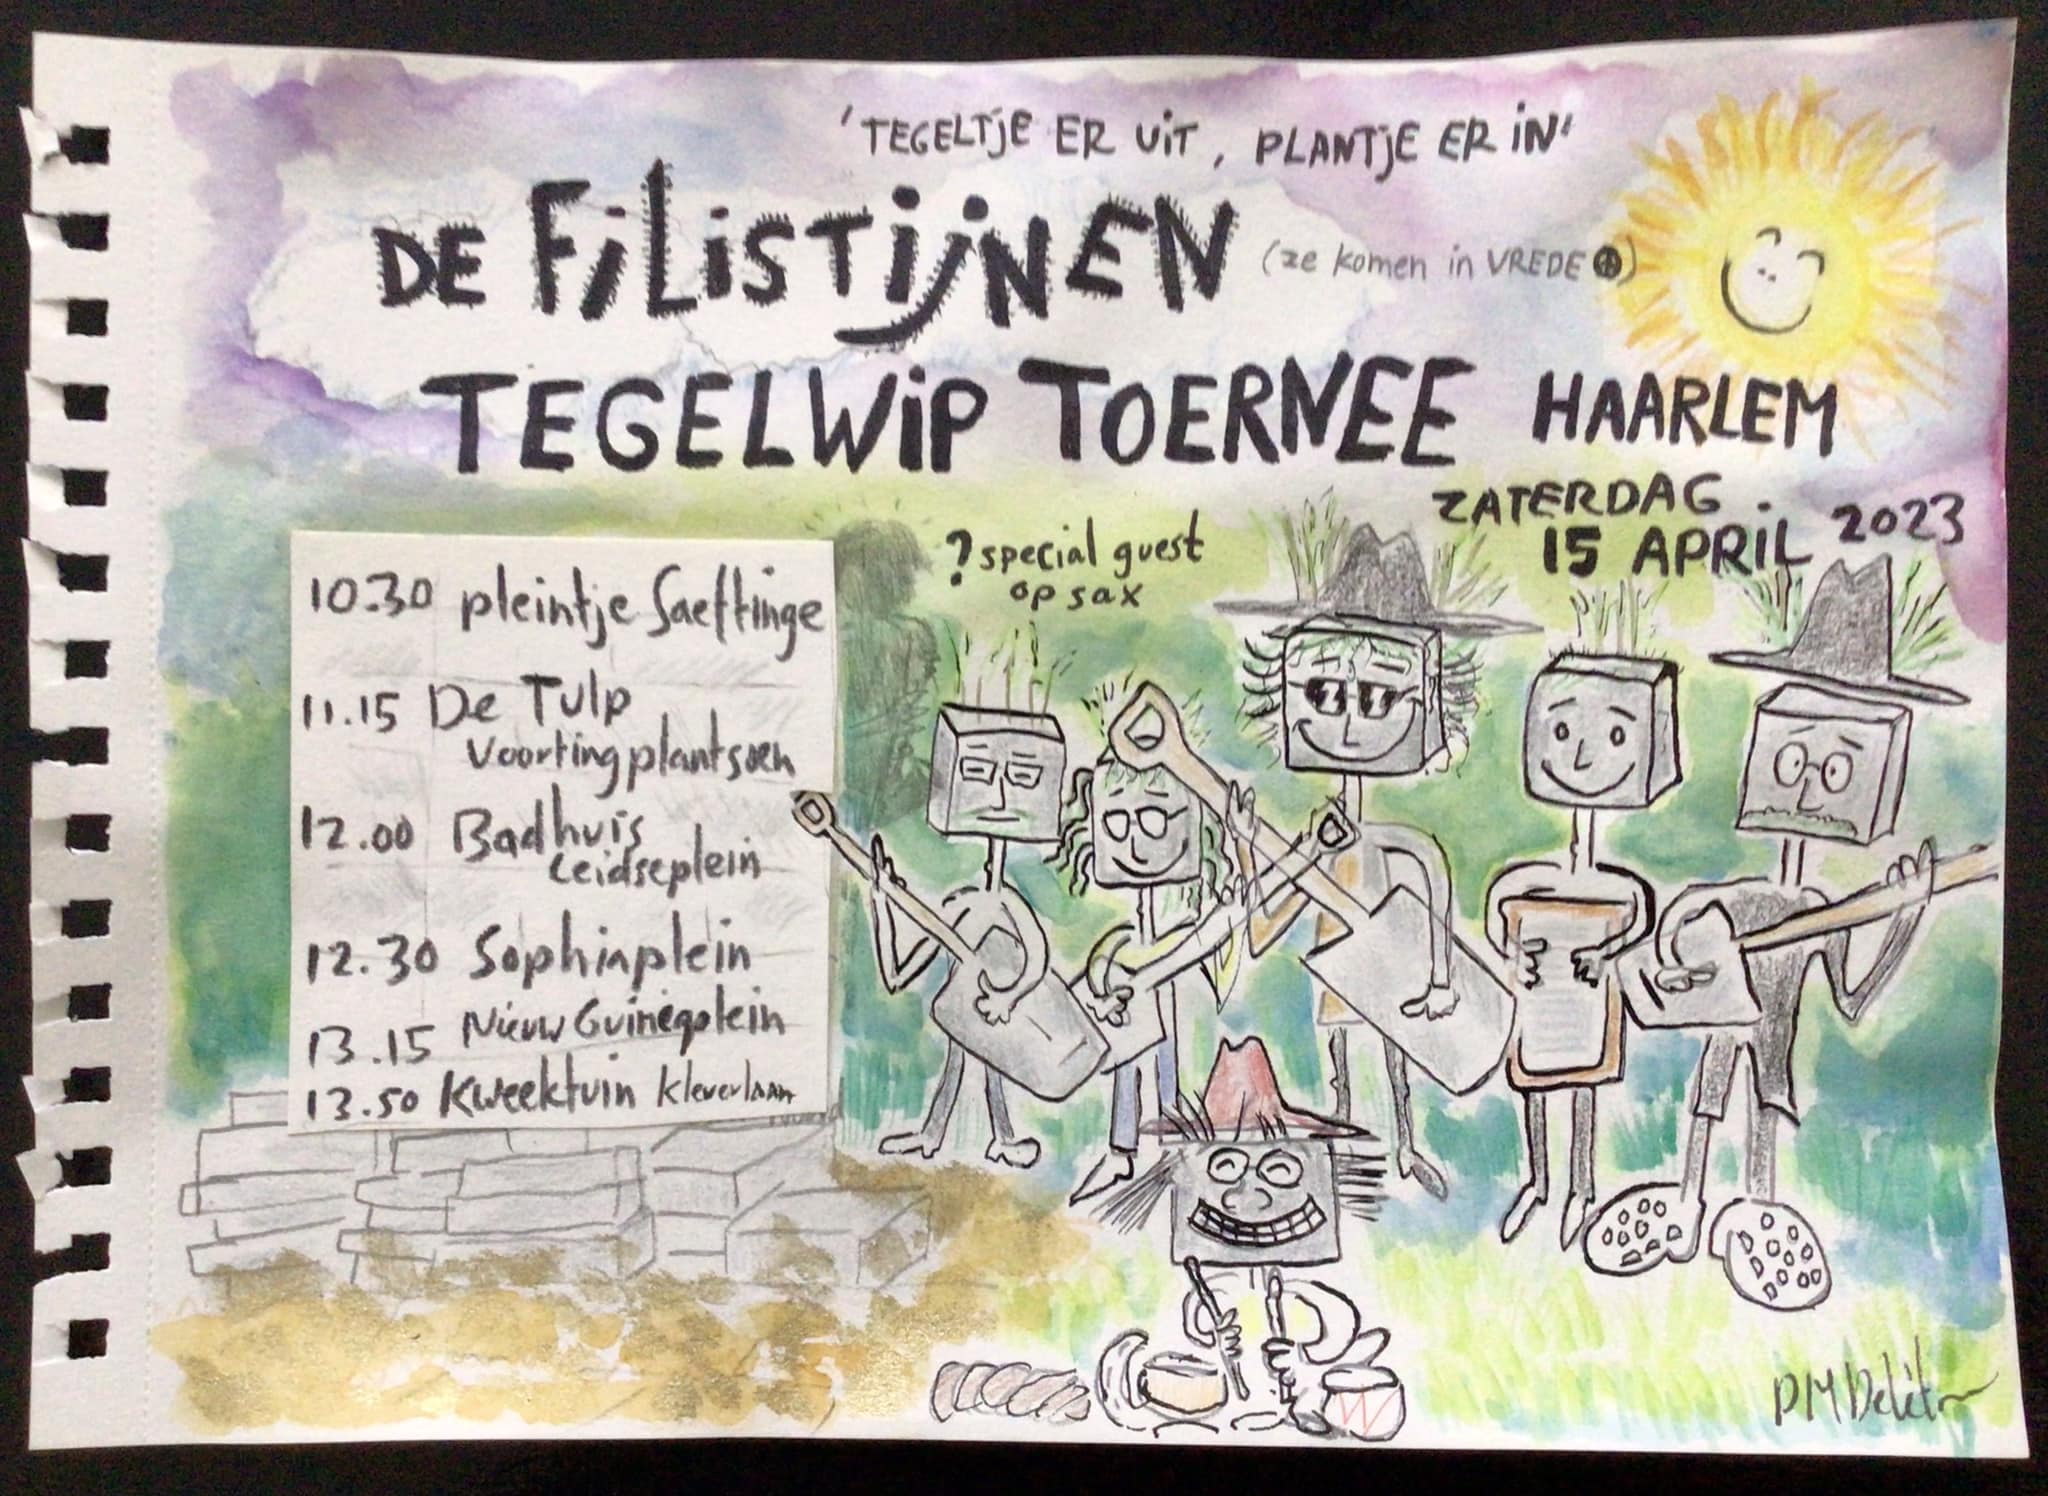 'TEGELTJE ER UIT, PLANTJE ER IN'
DE FILISTIJNEN (ze komen in VREDE)
TEGELWIP TOERNEE HAARLEM
ZATERDAG
15 APRIL 2023
? special guest
op sax
10.30 pleintje Saeftinge
11.15 De Tulp
Voortingplantsoen
12.00 Badhuis
Leidseplein
12.30 Sophiaplein
13.15 Nieuw Guineaplein
13.50 Kweektuin Kleverlaan